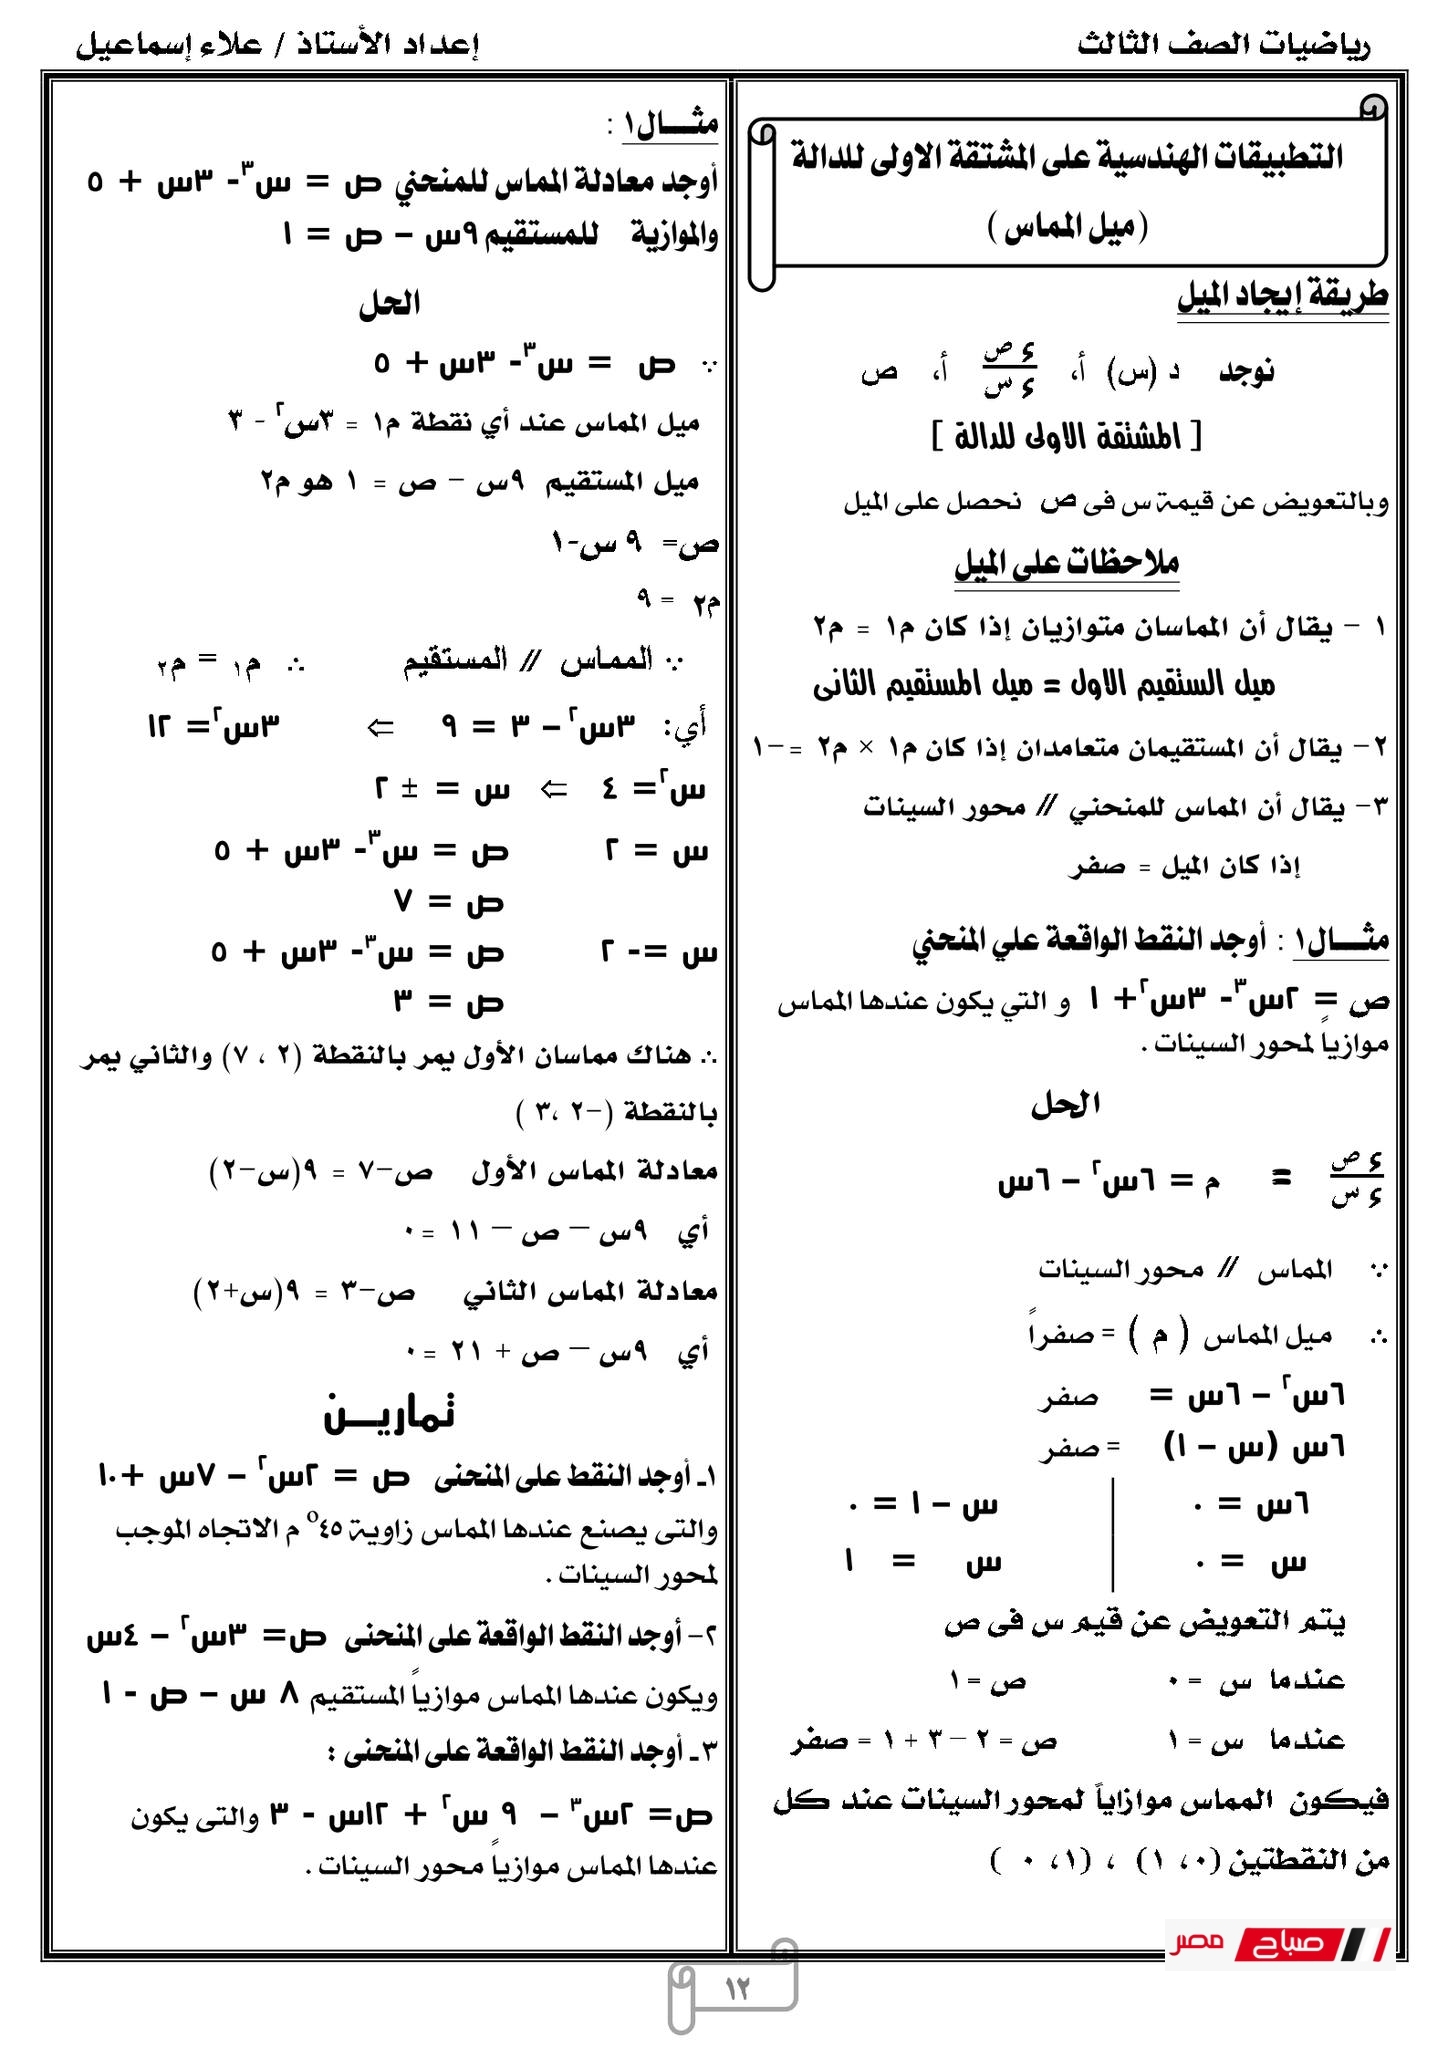 رياضيات الصف الثالث
إعداد الأستاذ / علاء إسماعيل
التطبيقات الهندسية على المشتقة الاولى للدالة
(ميل المماس )
طريقة إيجاد الميل
نوجد د (س) أ، ءص/ءس أ، ص
[ المشتقة الاولى للدالة ]
وبالتعويض عن قيمة س فى ص نحصل على الميل
ملاحظات على الميل
١ – يقال أن المماسان متوازيان إذا كان م١ = م٢
ميل الستقيم الاول = ميل المستقيم الثانى
٢– يقال أن المستقيمان متعامدان إذا كان م١ × م٢ = –١
٣– يقال أن المماس للمنحني // محور السينات
إذا كان الميل = صفر
مثـــال١ : أوجد النقط الواقعة علي المنحني
ص = ٢س٣- ٣س٢+ ١ و التي يكون عندها المماس
موازياً لمحور السينات .
الحل
ءص/ءس = م = ٦س٢ – ٦س
∵ المماس // محور السينات
∴ ميل المماس ( م ) = صفراً
٦س٢ – ٦س = صفر
٦س (س – ١) = صفر
٦س = ٠ | س – ١ = ٠
س = ٠ | س = ١
يتم التعويض عن قيم س فى ص
عندما س = ٠ ص = ١
عندما س = ١ ص = ٢ – ٣ + ١ = صفر
فيكون المماس موازاياً لمحور السينات عند كل
من النقطتين (٠، ١) ، (١، ٠ )
مثـــال١ :
أوجد معادلة المماس للمنحني ص = س٣- ٣س + ٥
والموازية للمستقيم ٩س – ص = ١
الحل
∵ ص = س٣- ٣س + ٥
ميل المماس عند أي نقطة م١ = ٣س٢ - ٣
ميل المستقيم ٩س – ص = ١ هو م٢
ص= ٩ س-١
م٢ = ٩
∵ المماس // المستقيم ∴ م١ = م٢
أي: ٣س٢ – ٣ = ٩ ⇐ ٣س٢= ١٢
س٢= ٤ ⇐ س = ± ٢
س = ٢ ص = س٣- ٣س + ٥
ص = ٧
س =- ٢ ص = س٣- ٣س + ٥
ص = ٣
∴ هناك مماسان الأول يمر بالنقطة (٢ ، ٧) والثاني يمر
بالنقطة (–٢ ،٣ )
معادلة المماس الأول ص–٧ = ٩(س–٢)
أي ٩س – ص – ١١ =٠
معادلة المماس الثاني ص–٣ = ٩(س+٢)
أي ٩س – ص + ٢١ =٠
تماريـــن
١ـ أوجد النقط على المنحنى ص = ٢س٢ – ٧س +١٠
والتى يصنع عندها المماس زاوية ٤٥o م الاتجاه الموجب
لمحور السينات .
٢– أوجد النقط الواقعة على المنحنى ص= ٣س٢ – ٤س
ويكون عندها المماس موازياً المستقيم ٨ س – ص - ١
٣ـ أوجد النقط الواقعة على المنحنى :
ص= ٢س٣ – ٩ س٢ + ١٢س - ٣ والتى يكون
عندها المماس موازياً محور السينات .
صباح مصر
١٢